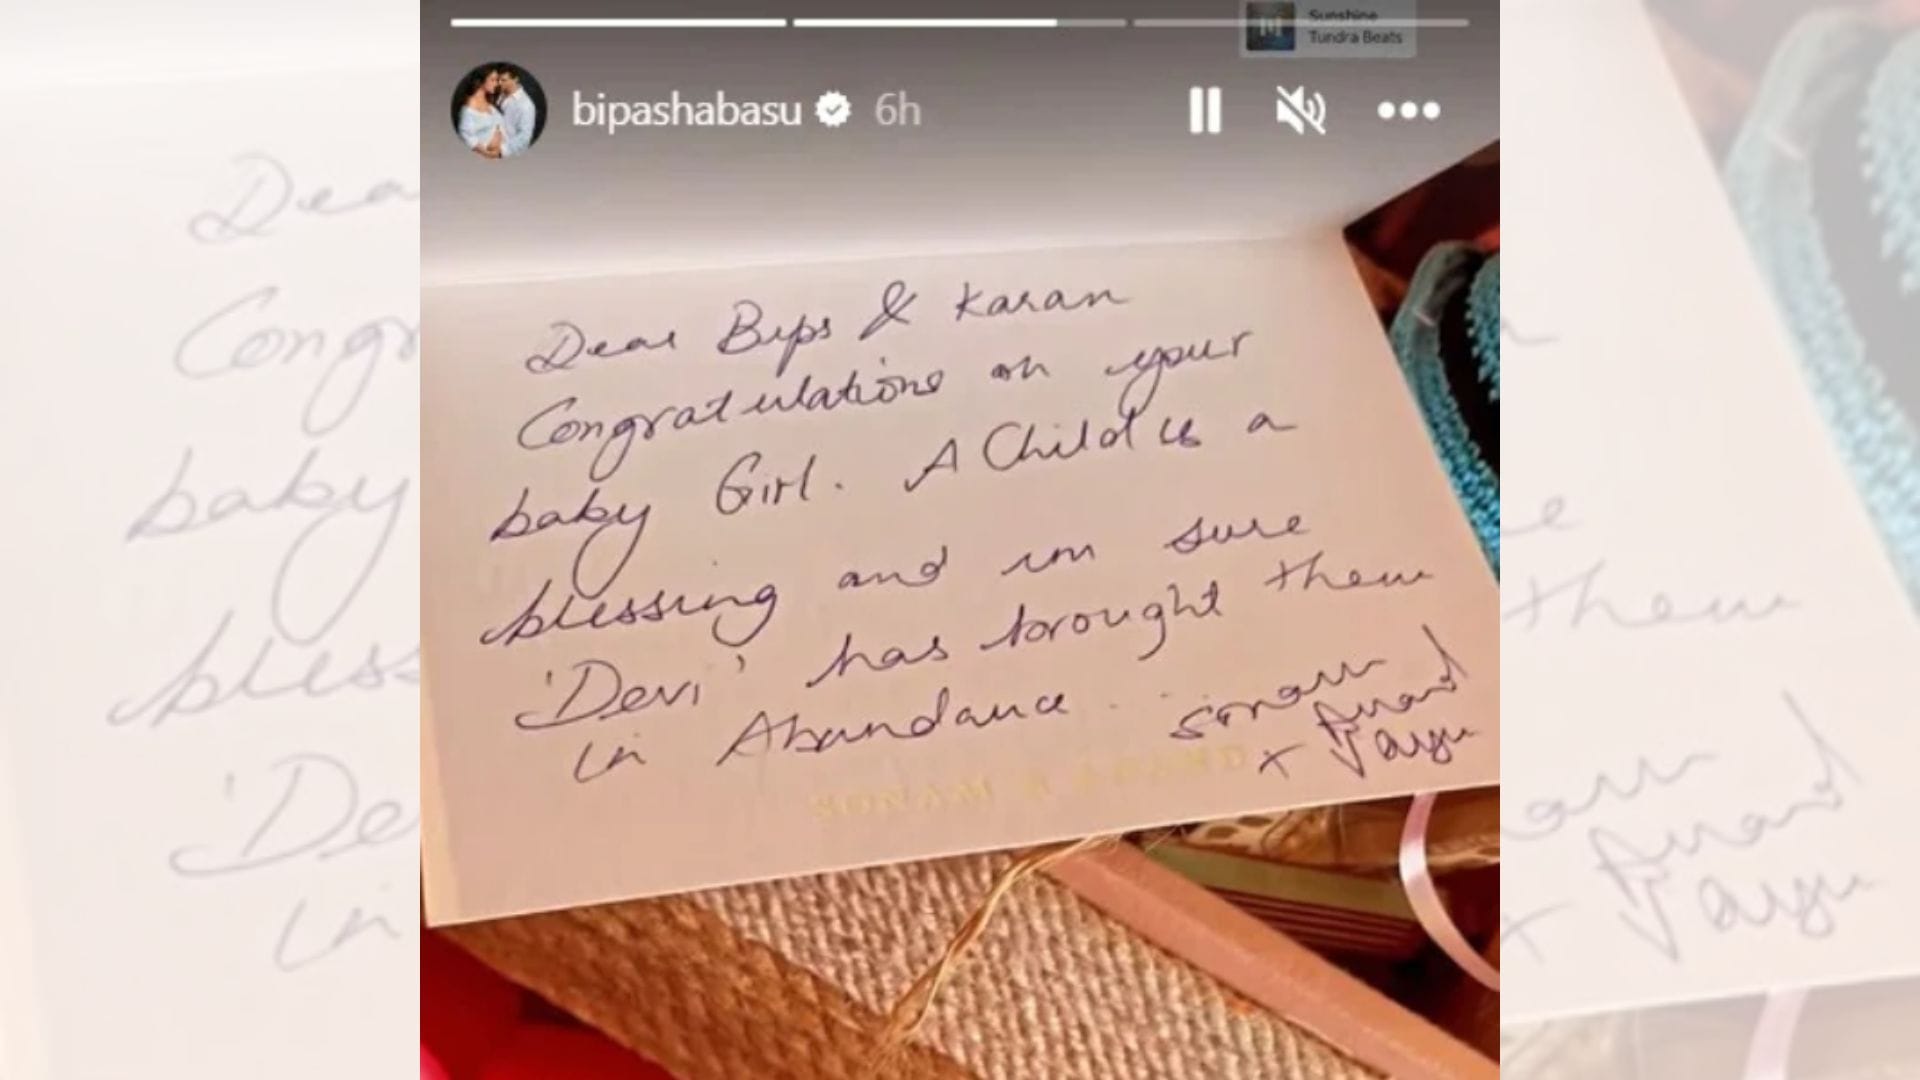 Sunshine
Tundra Beats
bipashabasu 6h
Dear Bips & Karan
Congratulations on your
baby Girl. A Child is a
blessing and im sure
'Devi' has brought them
in Abundance.
Sonam
Anand
+ Vayu
SONAM & ANAND